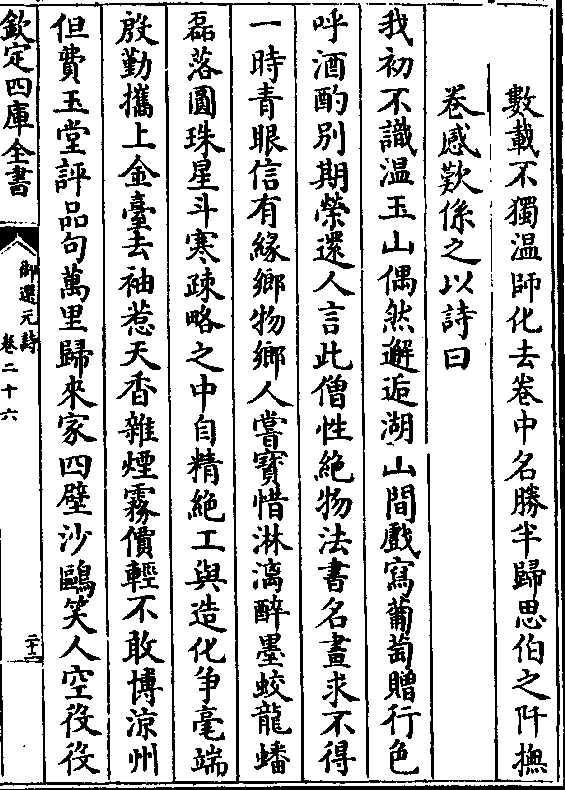 數載不獨温師化去卷中名勝半歸思伯之阡撫
卷感歎係之以詩曰
我初不識温玉山偶然邂逅湖山間戲寫葡萄贈行色
呼酒酌别期榮還人言此僧性絶物法書名畫求不得
一時青眼信有緣鄉物鄉人嘗寳惜淋漓醉墨蛟龍蟠
磊落圓珠星斗寒疎略之中自精絶工與造化争毫端
殷勤攜上金臺去袖惹天香雜煙霧價輕不敢博涼州
但費玉堂評品句萬里歸來家四壁沙鷗笑人空役役
欽定四庫全書
御選元詩
卷二十六
二十二